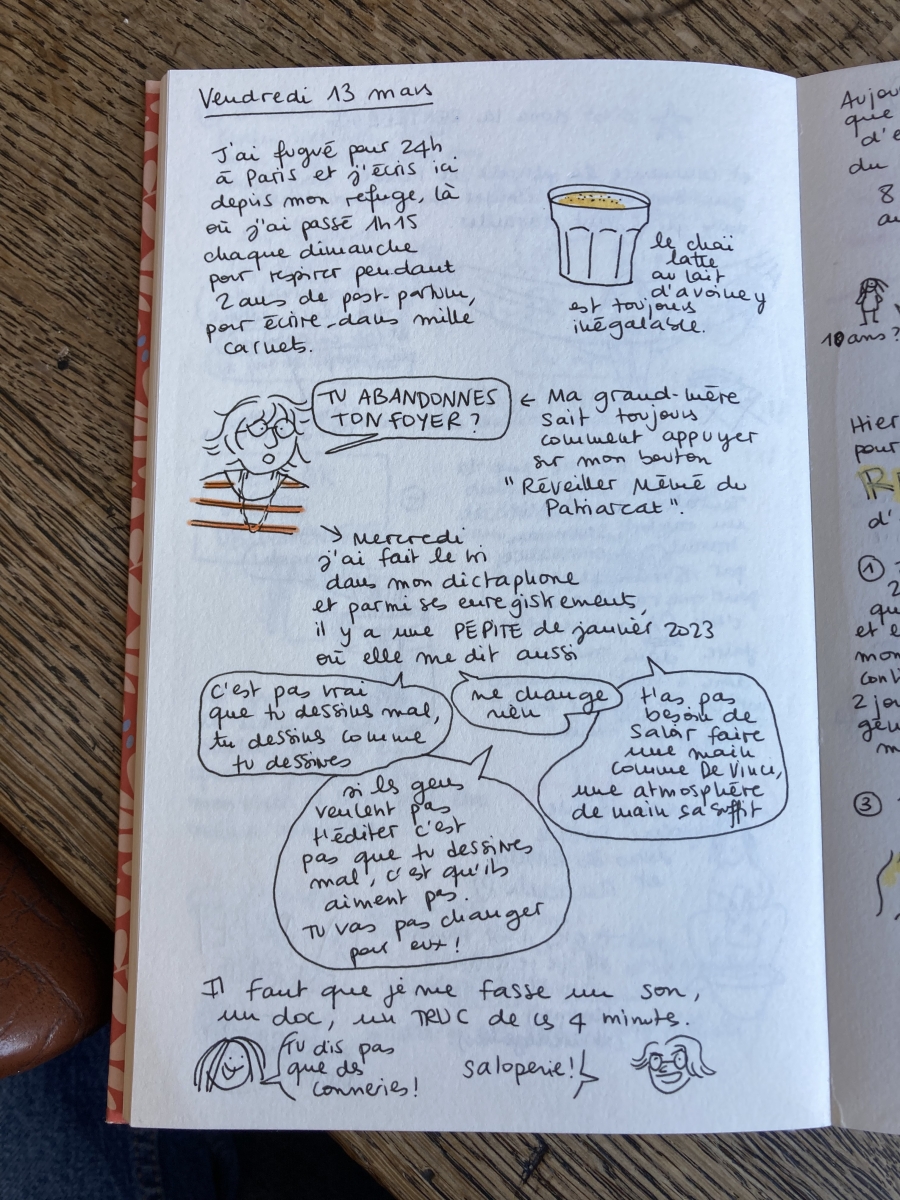 Vendredi 13 mars
J'ai fugué pour 24h
à Paris et j'écris ici
depuis mon refuge, là
où j'ai passé 1h15
chaque dimanche
pour respirer pendant
2 ans de post-partum,
pour écrire dans mille
carnets.
le chaï
latte
au lait
d'avoine y
est toujours
inégalable.
TU ABANDONNES
TON FOYER ?
← Ma grand-mère
sait toujours
comment appuyer
sur mon bouton
"Réveiller Mémé du
Patriarcat".
→ Mercredi
j'ai fait le tri
dans mon dictaphone
et parmi ses enregistrements,
il y a une PÉPITE de janvier 2023
où elle me dit aussi
c'est pas vrai
que tu dessins mal,
tu dessins comme
tu dessines
me change
rien
t'as pas
besoin de
savoir faire
une main
comme De Vinci,
une atmosphère
de main sa suffit
si les gens
veulent pas
t'éditer c'est
pas que tu dessines
mal, c'est qu'ils
aiment pas.
Tu vas pas changer
pour eux !
Il faut que je me fasse un son,
un doc, un TRUC de ces 4 minutes.
Tu dis pas
que des
conneries !
saloperie !
Aujou
que
d'e
du
8
au
10 ans ?
Hier
pour
R
d'
①
2
qu
et e
mon
conti
2 jo
gén
m
③